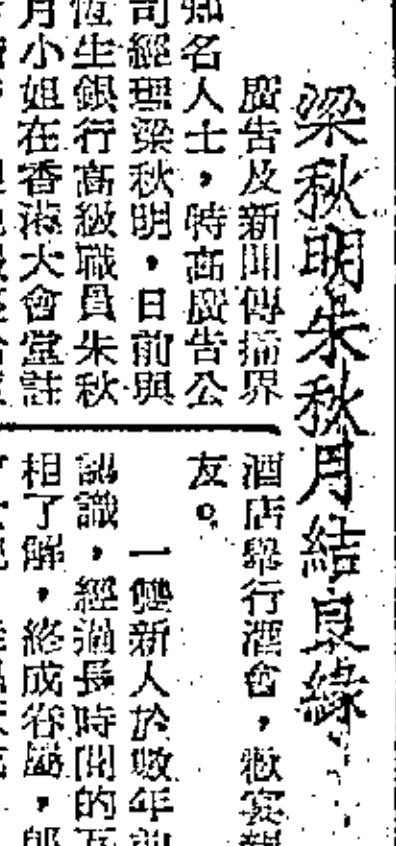 梁秋明朱秋月結良緣
廣告及新聞傳播界
知名人士,特高廣告公
司經理梁秋明,日前與
恆生銀行高級職員朱秋
月小姐在香港大會堂註
酒店舉行酒會,歡宴親
友。
一雙新人於數年前
認識,經過長時間的互
相了解,終成眷屬,郎